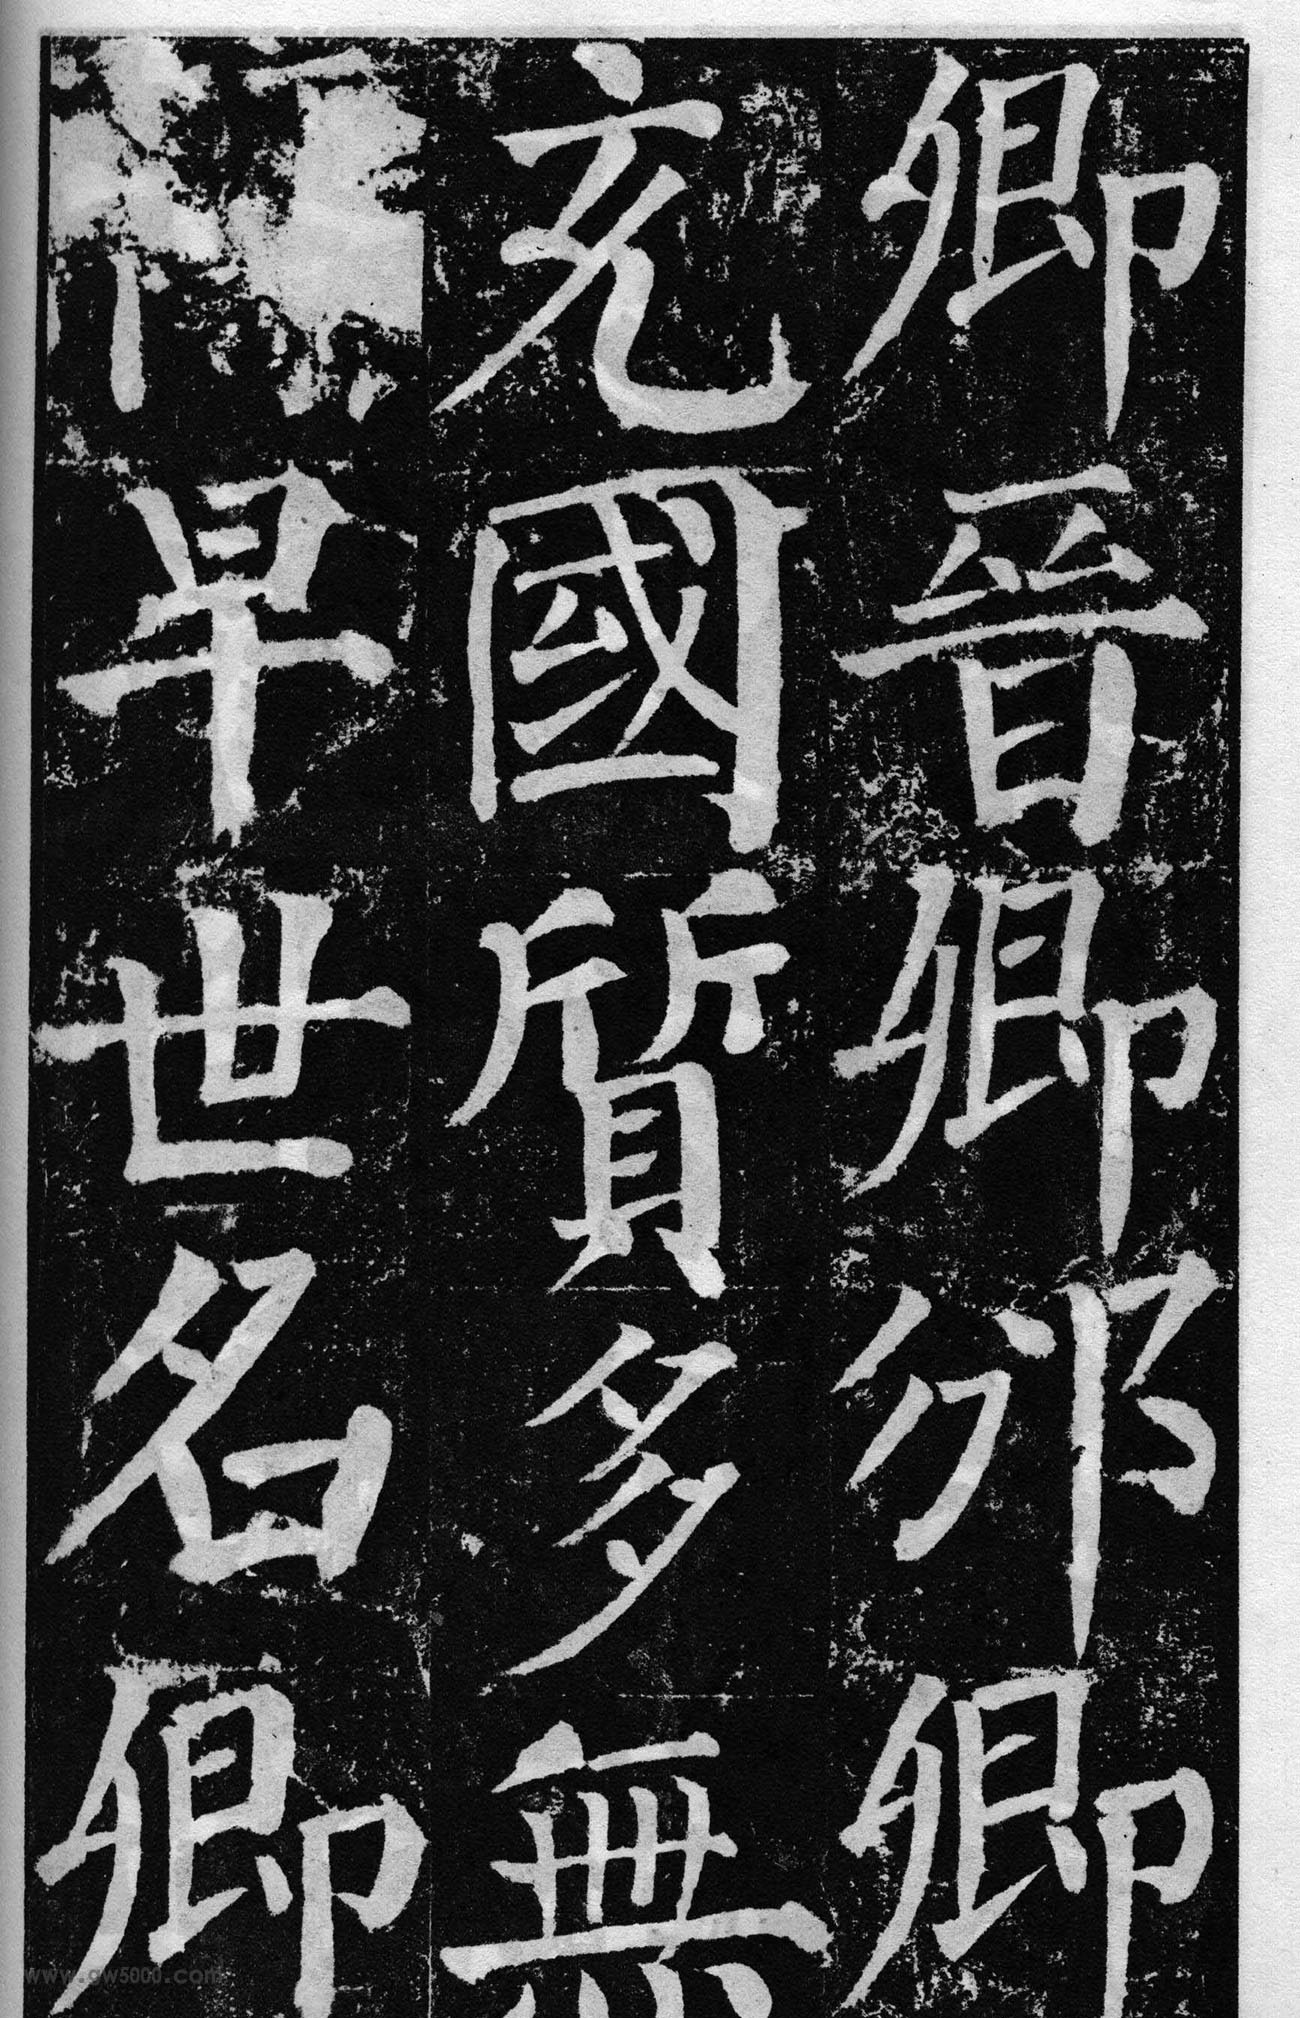 卿晉卿邠卿
充國質多無
早世名卿
www.gw5000.com